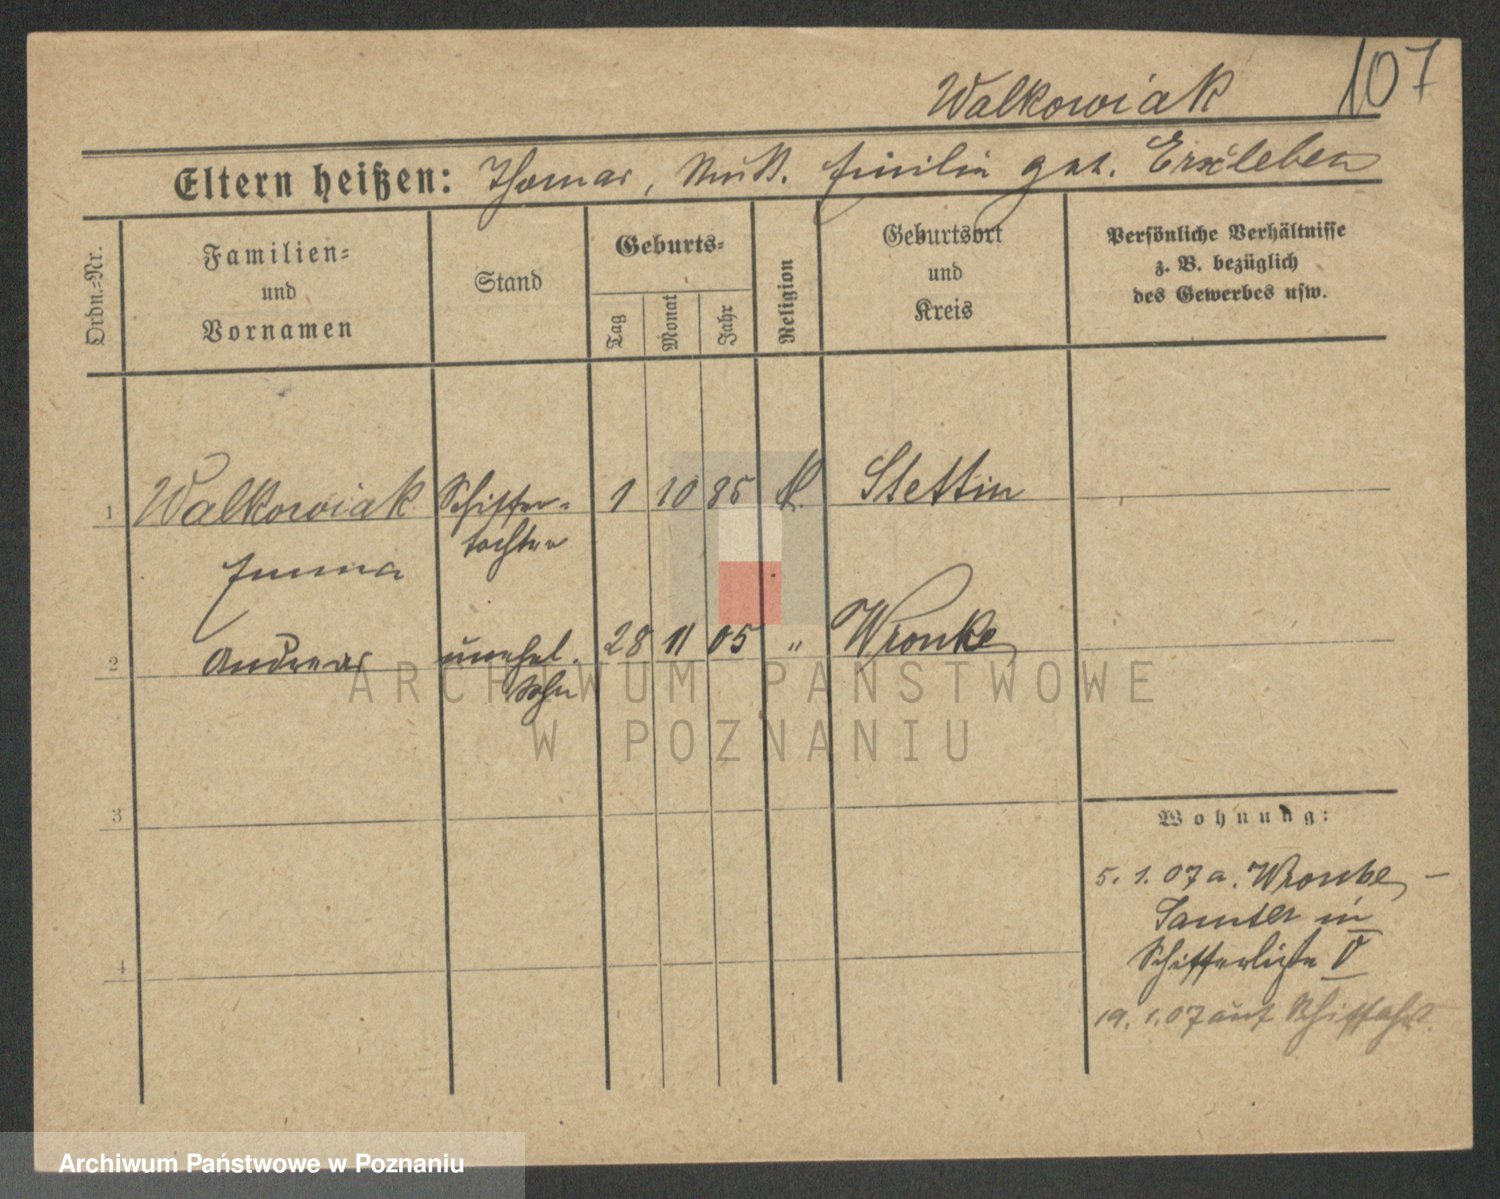 Walkowiak 107
Eltern heißen: Thomas, Emilia geb. Erxleben
Ordn.-Nr.
Familien-
und
Vornamen
Stand
Geburts-
Tag
Monat
Jahr
Religion
Geburtsort
und
Kreis
Persönliche Verhältnisse
z. B. bezüglich
des Gewerbes usw.
1 Walkowiak Schiffer- 1 10 85 k. Stettin
tochter
Emma
2 Andreas unehel. 28 11 05 " Wronke
Sohn
3
4
Wohnung:
5. 1. 07 a. Wronke, –
Samter in
Schifferliste V
19. 1. 07 auf Schiffahrt.
ARCHIWUM PAŃSTWOWE
W POZNANIU
Archiwum Państwowe w Poznaniu